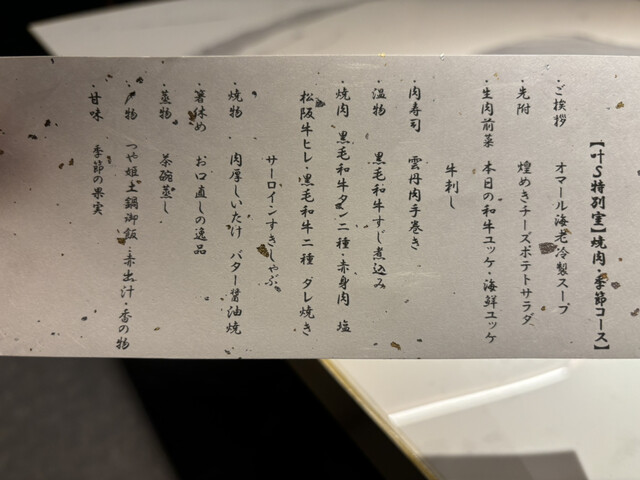 【叶S特別室】焼肉・季節コース】
・ご挨拶 オマール海老冷製スープ
・先附 煌めきチーズポテトサラダ
・生肉前菜 本日の和牛ユッケ・海鮮ユッケ
牛刺し
・肉寿司 雲丹肉手巻き
・温物 黒毛和牛すじ煮込み
・焼肉 黒毛和牛タン二種・赤身肉 塩
松阪牛ヒレ・黒毛和牛二種 ダレ焼き
サーロインすきしゃぶ
・焼物 肉厚しいたけ バター醤油焼
・箸休め お口直しの逸品
・蒸物 茶碗蒸し
・〆物 つや姫土鍋御飯・赤出汁・香の物
・甘味 季節の果実